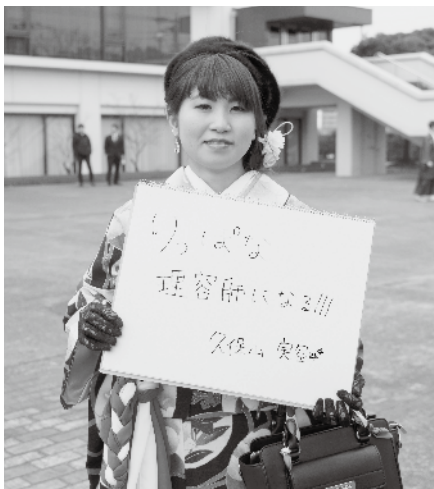 りっぱな
理容師になる!!!
久保